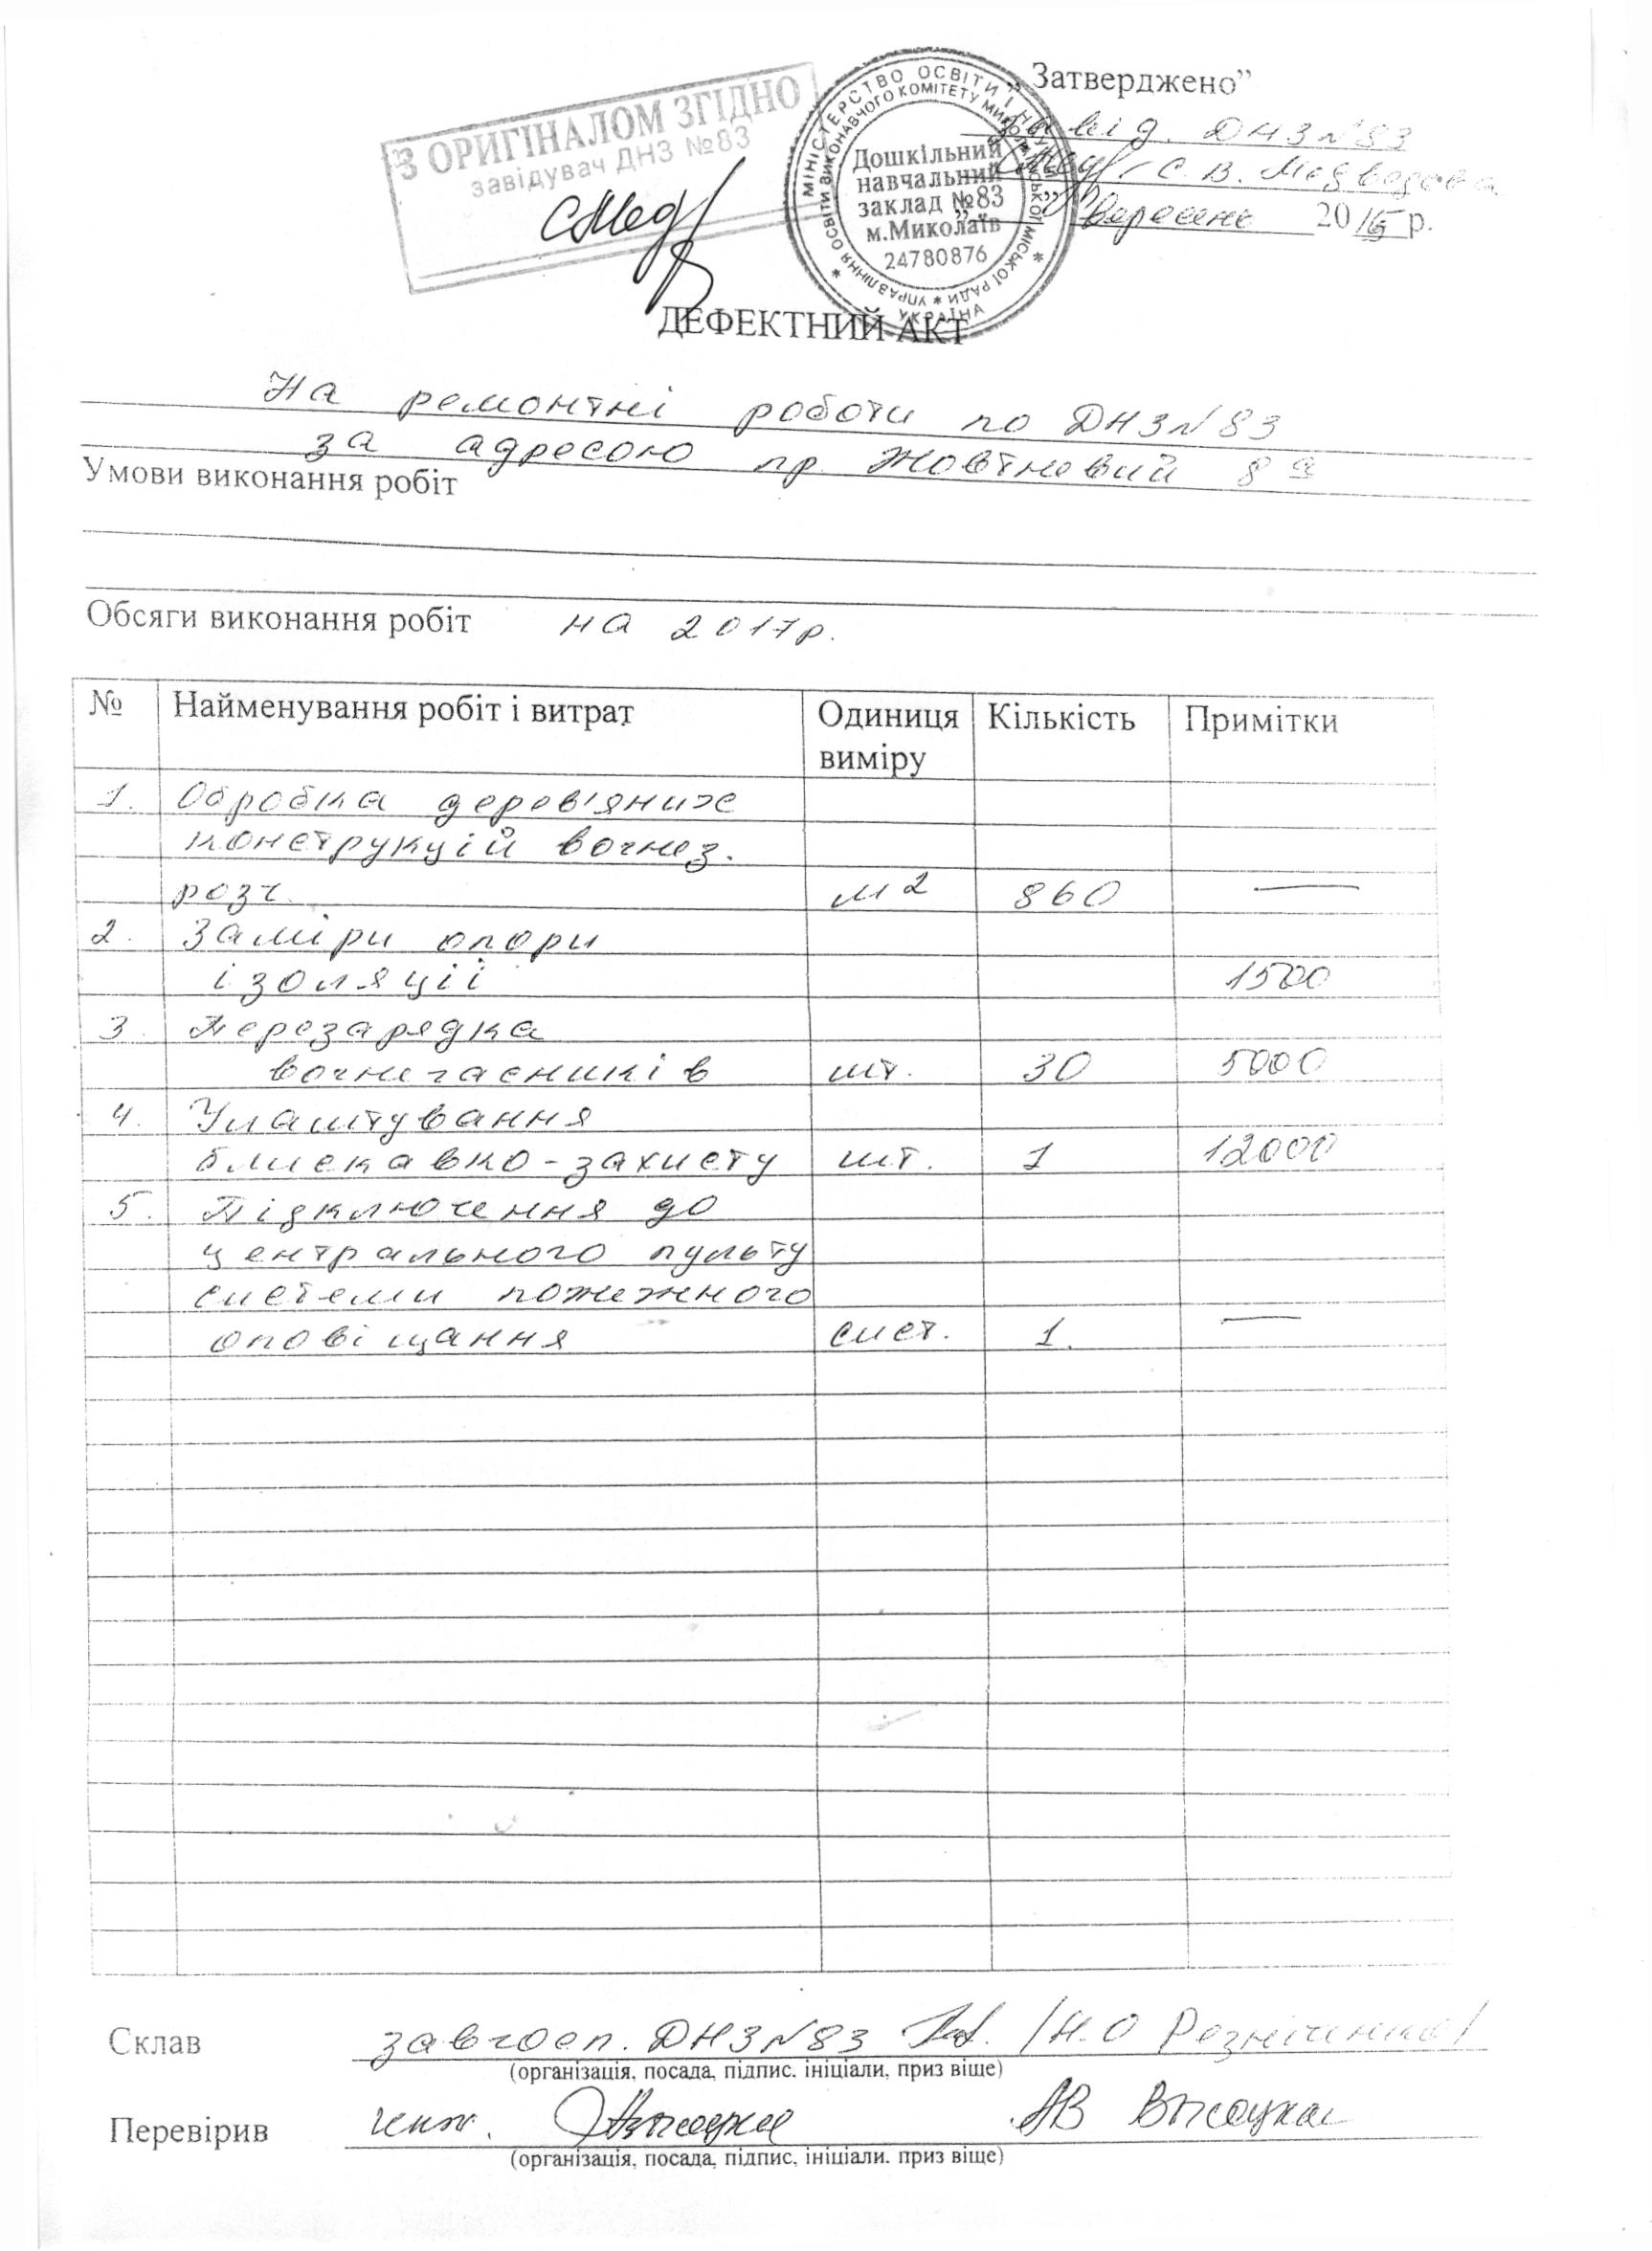 З ОРИГІНАЛОМ ЗГІДНО
завідувач ДНЗ №83
МІНІСТЕРСТВО ОСВІТИ І НАУКИ
УКРАЇНА
УПРАВЛІННЯ ОСВІТИ ВИКОНАВЧОГО КОМІТЕТУ МИКОЛАЇВСЬКОЇ МІСЬКОЇ РАДИ
Дошкільний
навчальний
заклад №83
м.Миколаїв
24780876
„Затверджено”
завід. ДНЗ №83
С. В. Медведєва
вересень 20 р.
ДЕФЕКТНИЙ АКТ
На ремонтні роботи по ДНЗ №83
за адресою пр. Жовтневий 8 а
Умови виконання робіт
Обсяги виконання робіт на 2017р.
№ Найменування робіт і витрат Одиниця виміру Кількість Примітки
1. Обробка дерев'яних
конструкцій вогнез.
розч. м2 860 —
2. Заміри опори
ізоляції 1500
3. Перезарядка
вогнегасників шт. 30 5000
4. Улаштування
блискавко-захисту шт. 1 12000
5. Підключення до
центрального пульту
системи пожежного
оповіщання сист. 1. —
Склав завгосп. ДНЗ №83 /Н.О Резніченко/
(організація, посада, підпис. ініціали, приз віще)
Перевірив інж. АВ Висоцька
(організація, посада, підпис, ініціали. приз віще)